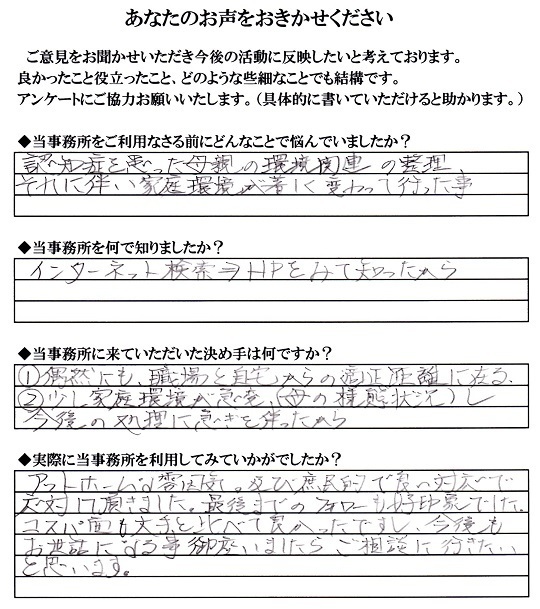 あなたのお声をおきかせください
ご意見をお聞かせいただき今後の活動に反映したいと考えております。
良かったこと役立ったこと、どのような些細なことでも結構です。
アンケートにご協力お願いいたします。（具体的に書いていただけると助かります。）
◆当事務所をご利用なさる前にどんなことで悩んでいましたか？
認知症を患った母親の環境関連の整理、
それに伴い家庭環境が著しく変わって行った事
◆当事務所を何で知りましたか？
インターネット検索⇒HPをみて知ったから
◆当事務所に来ていただいた決め手は何ですか？
①偶然にも、職場と自宅からの適正距離に在る、
②少し家庭環境が急変、(母の様態状況)し
今後の処理に急きを伴ったから
◆実際に当事務所を利用してみていかがでしたか？
アットホームな雰囲気。及び庶民的で良い対応で
応対して頂きました。最後までのフォローも好印象でした。
コスパ面も大手と比べて良かったですし、今後も
お世話になる事御座いましたらご相談に行きたい
と思います。